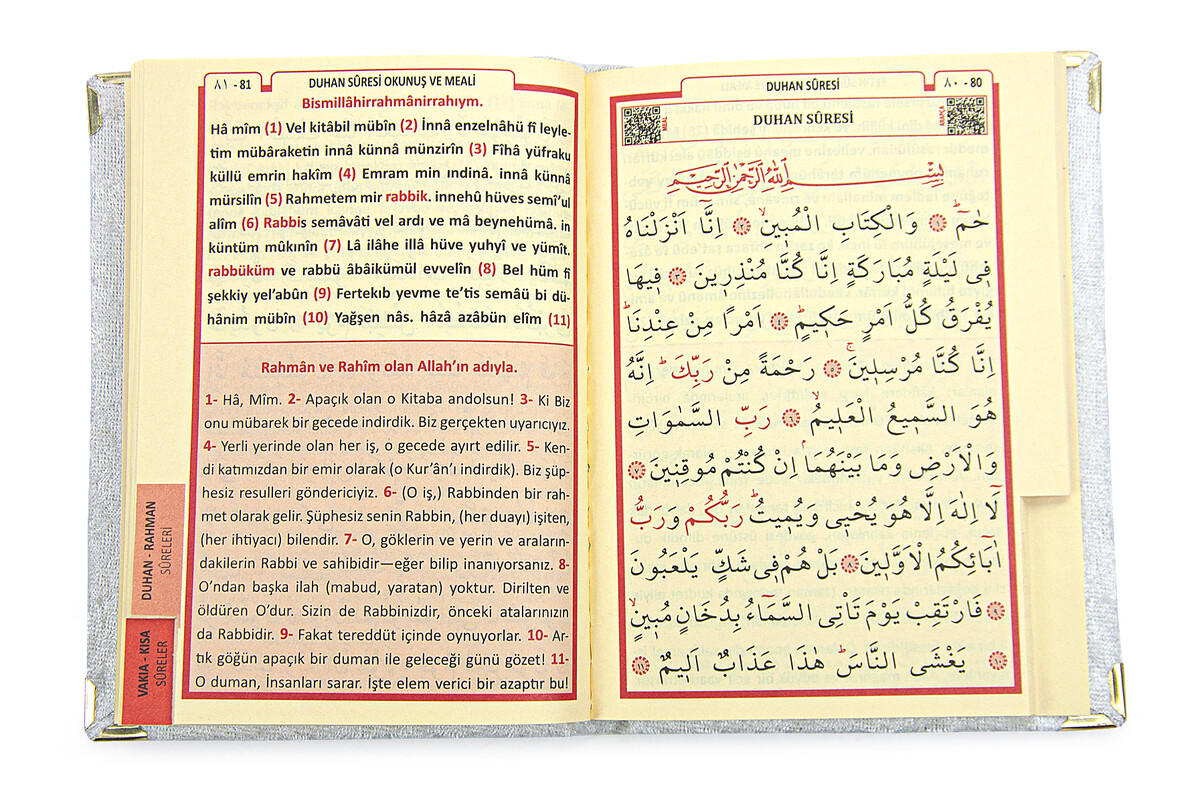 ٨٠ - 80
DUHAN SÛRESİ
MEAL
DUHAN SÛRESİ
ARAPÇA
بِسْمِ اللّٰهِ الرَّحْمٰنِ الرَّحِيمِ
حٰمٓ ۚ ﴿١﴾ وَالْكِتَابِ الْمُبِينِ ۙ ﴿٢﴾ اِنَّٓا اَنْزَلْنَاهُ
فِي لَيْلَةٍ مُبَارَكَةٍ اِنَّا كُنَّا مُنْذِرِينَ ﴿٣﴾ فِيهَا
يُفْرَقُ كُلُّ اَمْرٍ حَكِيمٍ ۙ ﴿٤﴾ اَمْرًا مِنْ عِنْدِنَا ۜ
اِنَّا كُنَّا مُرْسِلِينَ ۚ ﴿٥﴾ رَحْمَةً مِنْ رَبِّكَ ۜ اِنَّهُ
هُوَ السَّمِيعُ الْعَلِيمُ ۙ ﴿٦﴾ رَبِّ السَّمٰوَاتِ
وَالْاَرْضِ وَمَا بَيْنَهُمَا ۢ اِنْ كُنْتُمْ مُوقِنِينَ ﴿٧﴾
لَٓا اِلٰهَ اِلَّا هُوَ يُحْيِى وَيُمِيتُ ۜ رَبُّكُمْ وَرَبُّ
اٰبَٓائِكُمُ الْاَوَّلِينَ ﴿٨﴾ بَلْ هُمْ فِي شَكٍّ يَلْعَبُونَ
﴿٩﴾ فَارْتَقِبْ يَوْمَ تَأْتِى السَّمَٓاءُ بِدُخَانٍ مُبِينٍ ۙ
﴿١٠﴾ يَغْشَى النَّاسَ ۜ هٰذَا عَذَابٌ اَلِيمٌ ﴿١١﴾
٨١ - 81
DUHAN SÛRESİ OKUNUŞ VE MEALİ
Bismillâhirrahmânirrahıym.
Hâ mîm (1) Vel kitâbil mübîn (2) İnnâ enzelnâhü fî leyle-
tim mübâraketin innâ künnâ münzirîn (3) Fîhâ yüfraku
küllü emrin hakîm (4) Emram min ındinâ. innâ künnâ
mürsilîn (5) Rahmetem mir rabbik. innehû hüves semî’ul
alîm (6) Rabbis semâvâti vel ardı ve mâ beynehümâ. in
küntüm mûkınîn (7) Lâ ilâhe illâ hüve yuhyî ve yümît.
rabbüküm ve rabbü âbâikümül evvelîn (8) Bel hüm fî
şekkiy yel’abûn (9) Fertekıb yevme te’tis semâü bi dü-
hânim mübîn (10) Yağşen nâs. hâzâ azâbün elîm (11)
Rahmân ve Rahîm olan Allah’ın adıyla.
1- Hâ, Mîm. 2- Apaçık olan o Kitaba andolsun! 3- Ki Biz
onu mübarek bir gecede indirdik. Biz gerçekten uyarıcıyız.
4- Yerli yerinde olan her iş, o gecede ayırt edilir. 5- Ken-
di katımızdan bir emir olarak (o Kur’ân’ı indirdik). Biz şüp-
hesiz resulleri göndericiyiz. 6- (O iş,) Rabbinden bir rah-
met olarak gelir. Şüphesiz senin Rabbin, (her duayı) işiten,
(her ihtiyacı) bilendir. 7- O, göklerin ve yerin ve araların-
dakilerin Rabbi ve sahibidir—eğer bilip inanıyorsanız. 8-
O’ndan başka ilah (mabud, yaratan) yoktur. Dirilten ve
öldüren O’dur. Sizin de Rabbinizdir, önceki atalarınızın
da Rabbidir. 9- Fakat tereddüt içinde oynuyorlar. 10- Ar-
tık göğün apaçık bir duman ile geleceği günü gözet! 11-
O duman, İnsanları sarar. İşte elem verici bir azaptır bu!
DUHAN - RAHMAN
SÛRELERİ
VAKIA - KISA
SÛRELER